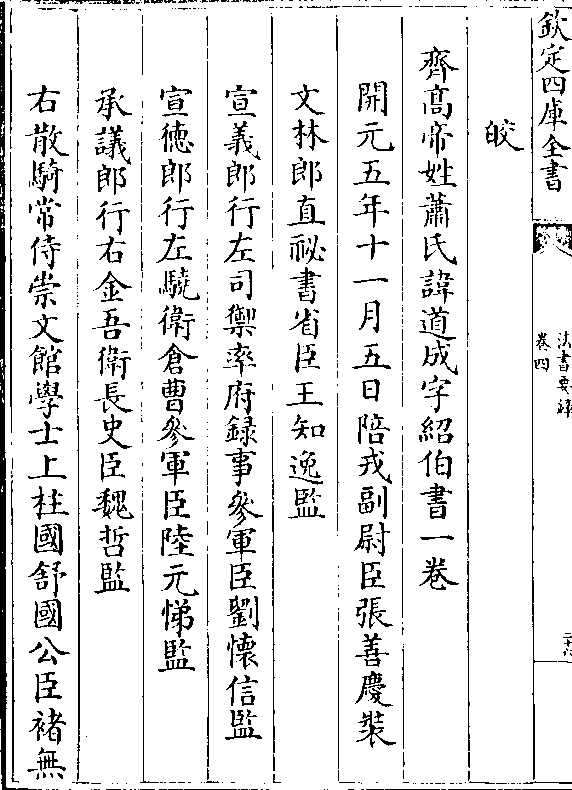 欽定四庫全書
法書要錄
卷四
二十六
皎
齊高帝姓蕭氏諱道成字紹伯書一卷
開元五年十一月五日陪戎副尉臣張善慶裝
文林郎直祕書省臣王知逸監
宣義郎行左司禦率府録事參軍臣劉懷信監
宣德郎行左驍衛倉曹參軍臣陸元悌監
承議郎行右金吾衛長史臣魏哲監
右散騎常侍崇文館學士上柱國舒國公臣褚無